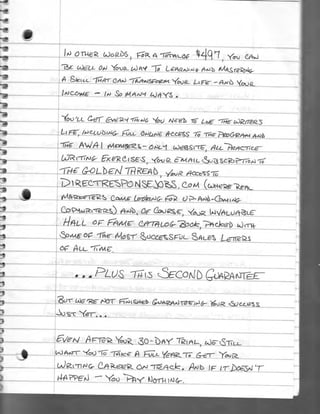 IN OTHER WORDS, FOR A TOTAL OF $497, YOU CAN
BE WELL ON YOUR WAY TO LEARNING AND MASTERING
A SKILL THAT CAN TRANSFORM YOUR LIFE - AND YOUR
INCOME - IN SO MANY WAYS.
YOU'LL GET EVERYTHING YOU NEED TO LIVE THE WRITER'S
LIFE, INCLUDING FULL ONLINE ACCESS TO THE PROGRAM AND
THE AWAI MEMBERS-ONLY WEBSITE, ALL PRACTICE
WRITING EXERCISES, YOUR EMAIL SUBSCRIPTION TO
THE GOLDEN THREAD, YOUR ACCESS TO
DIRECTRESPONSEJOBS.COM (WHERE REAL
MARKETERS COME LOOKING FOR UP-AND-COMING
COPYWRITERS) AND, OF COURSE, YOUR INVALUABLE
HALL OF FAME CATALOG BOOK, PACKED WITH
SOME OF THE MOST SUCCESSFUL SALES LETTERS
OF ALL TIME.
...PLUS THIS SECOND GUARANTEE
BUT WE'RE NOT FINISHED GUARANTEEING YOUR SUCCESS
JUST YET...
EVEN AFTER YOUR 30-DAY TRIAL, WE STILL
WANT YOU TO TAKE A FULL YEAR TO GET YOUR
WRITING CAREER ON TRACK. AND IF IT DOESN'T
HAPPEN - YOU PAY NOTHING.